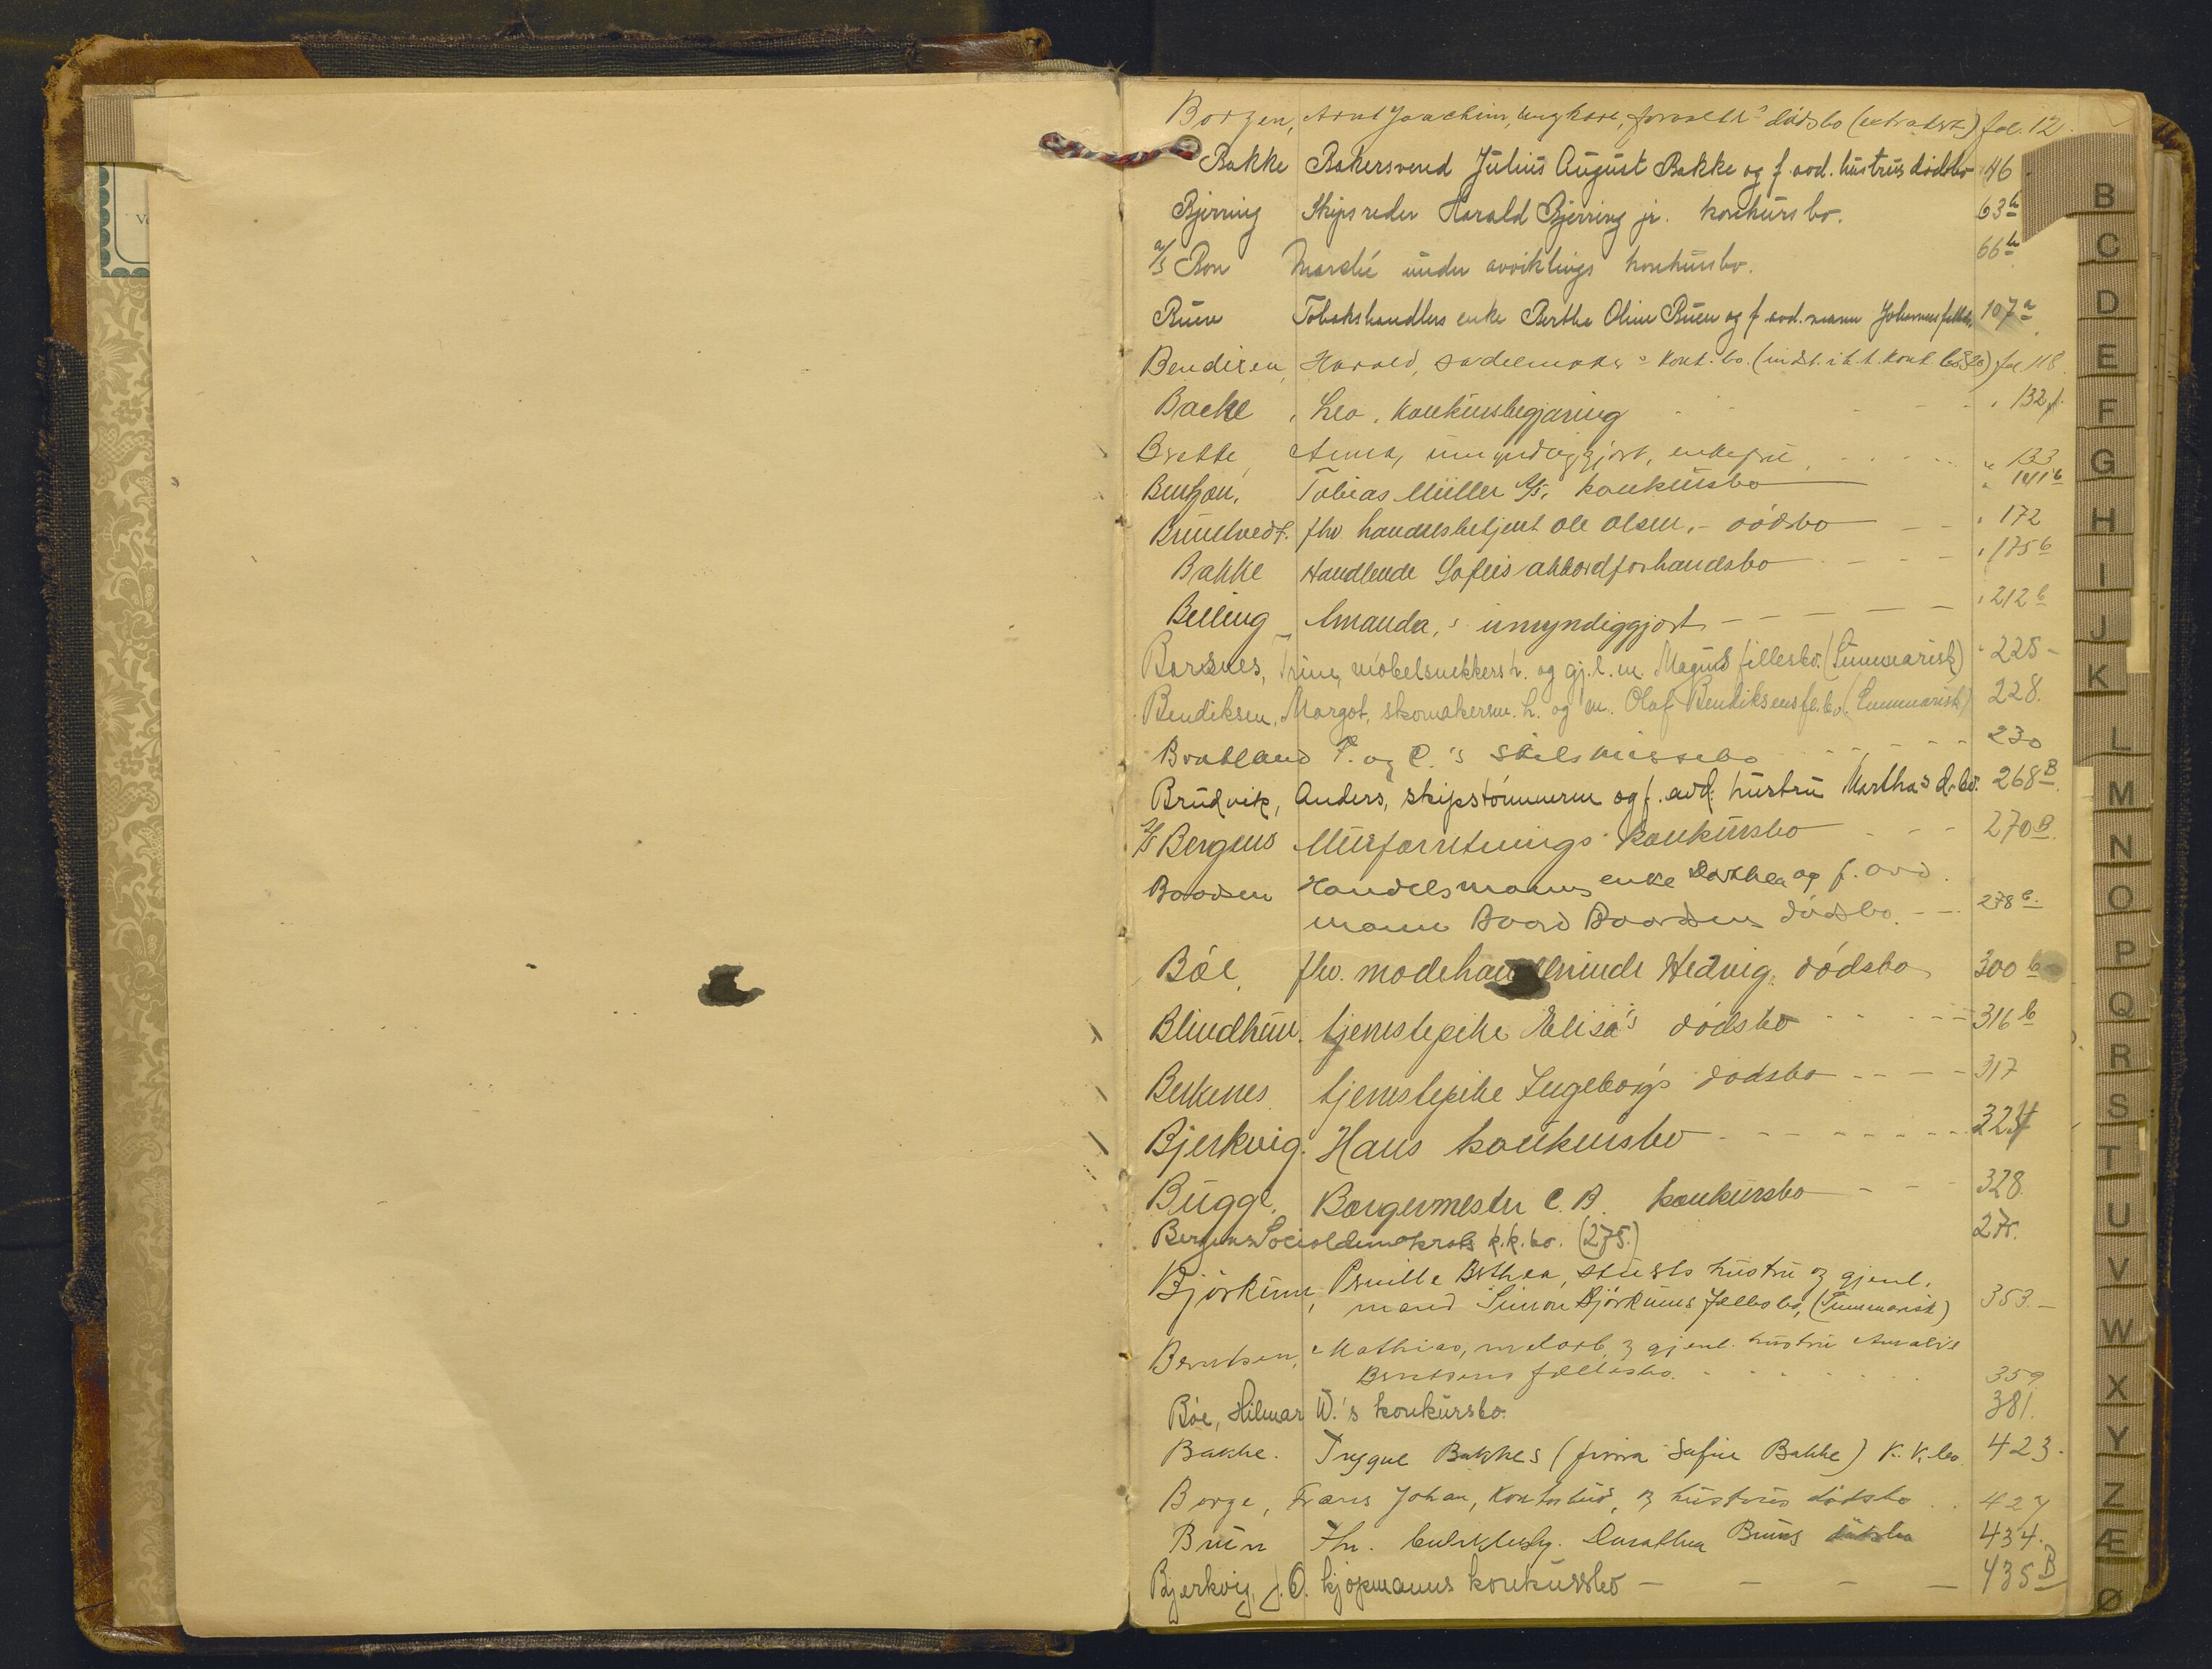 Borgen, Arnt Joachim, ungkarl, dødsbo (extraksk.) fol. 12.
Bakke Bakersvend Julius August Bakke og f. avd. hustrus dødsbo 146.
Bjerring Skipsreder Harald Bjerring jr. konkursbo. 63 b
a/s Bon Marché under avviklings konkursbo. 66 b
Buen Tobakshandlers enke Bertha Oline Buen og f. avd. mann Johannes fellesb. 107 a
Bendixen, Harald, sadelmaker s konk. bo. fol 118.
Backe, Leo, konkursbegjæring " 132
Brekke, Anna, umyndiggjort, enkefru " 133
Bentzon, Tobias Müller a/s, konkursbo " 141 b
Brundtvedt. fhv. handelsbetjent Ole Olsen, - dødsbo " 172
Bakke Handlende Sofies akkordforhandsbo " 175 b
Belling Amanda, s umyndiggjort " 212 b
Barsnes, Trine, møbelsnekkers h. og gj.l.m. Magnus fellesbo. (Summarisk) " 225 -
Bendiksen, Margot, skomakersv. h. og m. Olaf Bendiksens fl.bo. (Summarisk) 228.
Bratland P. og C.'s skilsmissebo 230
Brudvik, Anders, skipstømmerm og f. avd. hustru Marthas d.bo. 268 B.
a/s Bergens Murforretnings konkursbo 270 B.
Baardsen Handelsmanns enke Dorthea og f. avd.
mann Baard Baardsens dødsbo. 278 b.
Bøe, fhv. modehandlerinde Hedvig. dødsbo 300 b
Blindheim. tjenestepike Elisa's dødsbo 316 b
Berkenes tjenestepike Ingeborg's dødsbo 317
Bjerkvig. Hans konkursbo 324
Bugge, Borgermester C. B. konkursbo 328.
Bergens Socialdemokrats k.k.bo. (275.) 275.
Bjørkum, Pernille Berthea, stuerts hustru og gjenl.
mand Simon Bjørkums fellesbo, (Summarisk) 353. -
Berntsen, Mathias, og gjenl. hustru Amalie
Berntsens fellesbo. 359
Bøe, Hilmar W.'s konkursbo. 381.
Bakke. Trygve Bakkes (firma Sofie Bakke) K.K. bo. 423.
Borge, Frans Johan, Kontorbud, og hustrus dødsbo 427
Bruun Fhv. Dorathea Bruns dødsbo 434.
Bjerkvig, J. O. kjøpmanns konkursbo 435 B
B
C
D
E
F
G
H
I
J
K
L
M
N
O
P
Q
R
S
T
U
V
W
X
Y
Z
Æ
Ø